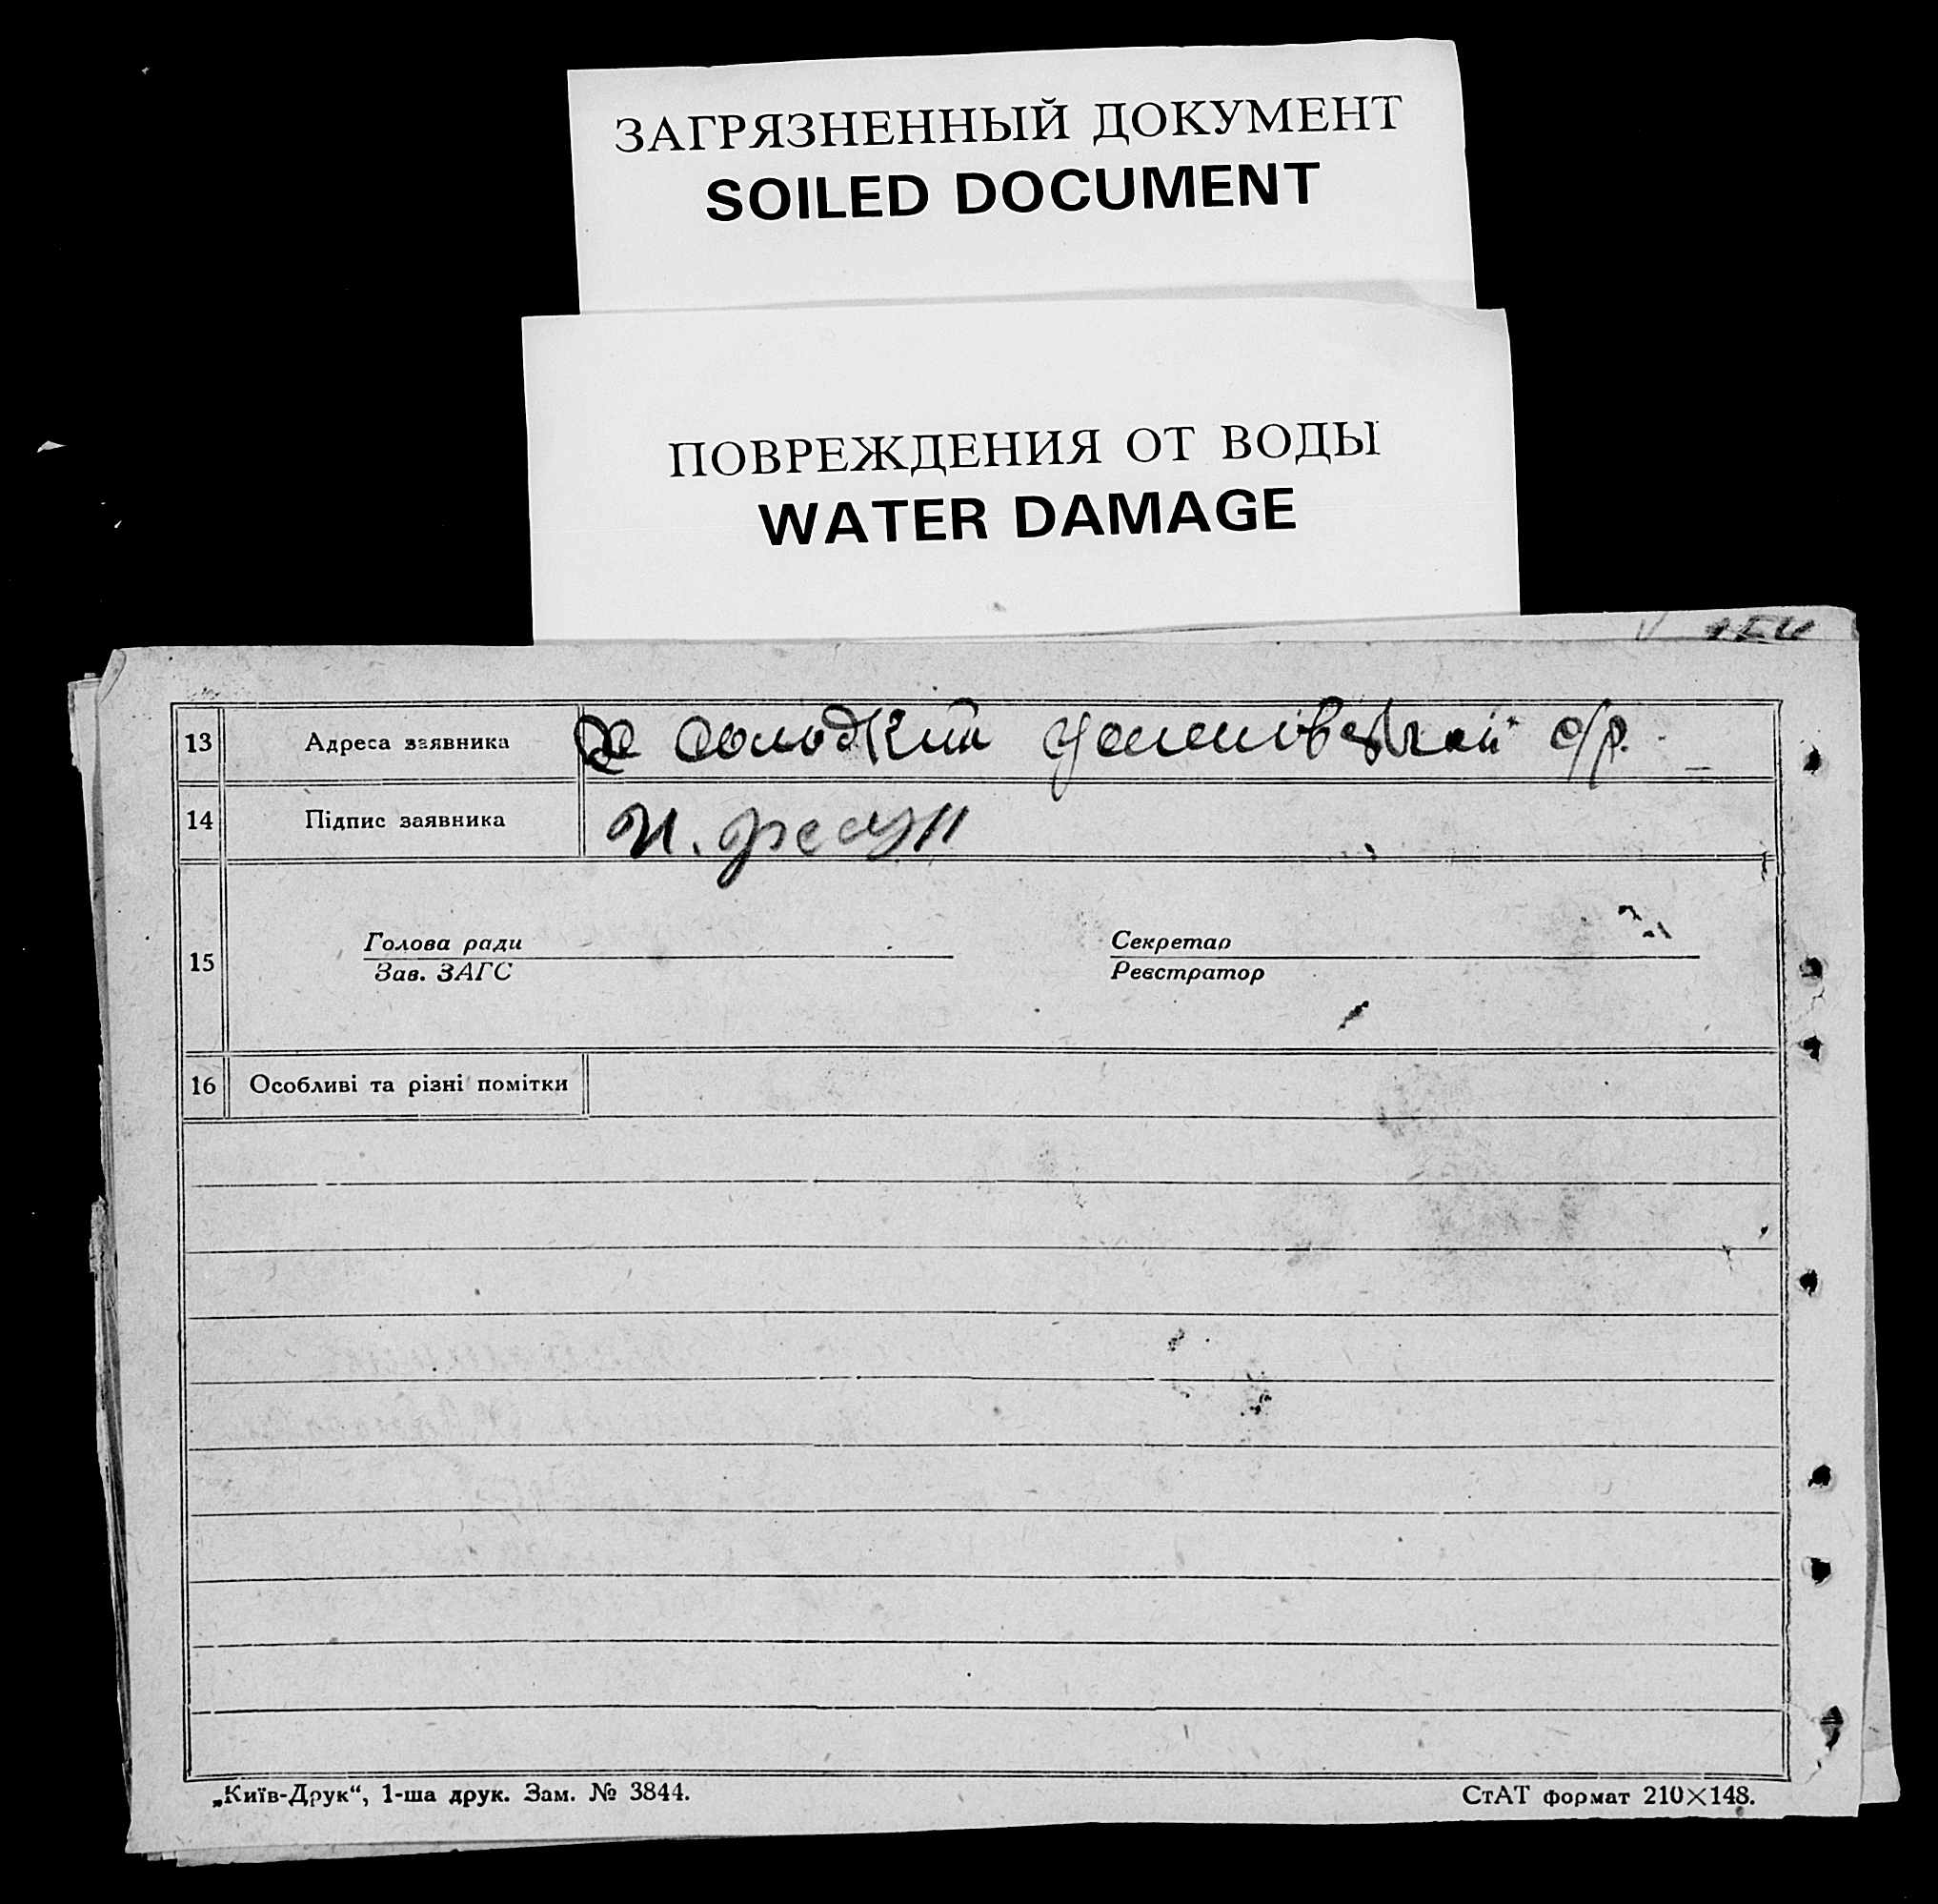 ЗАГРЯЗНЕННЫЙ ДОКУМЕНТ
SOILED DOCUMENT
ПОВРЕЖДЕНИЯ ОТ ВОДЫ
WATER DAMAGE
13 Адреса заявника с/р.
14 Підпис заявника
Голова ради Секретар
15
Зав. ЗАГС Реєстратор
16 Особливі та різні помітки
„Київ-Друк“, 1-ша друк. Зам. № 3844. СтАТ формат 210×148.